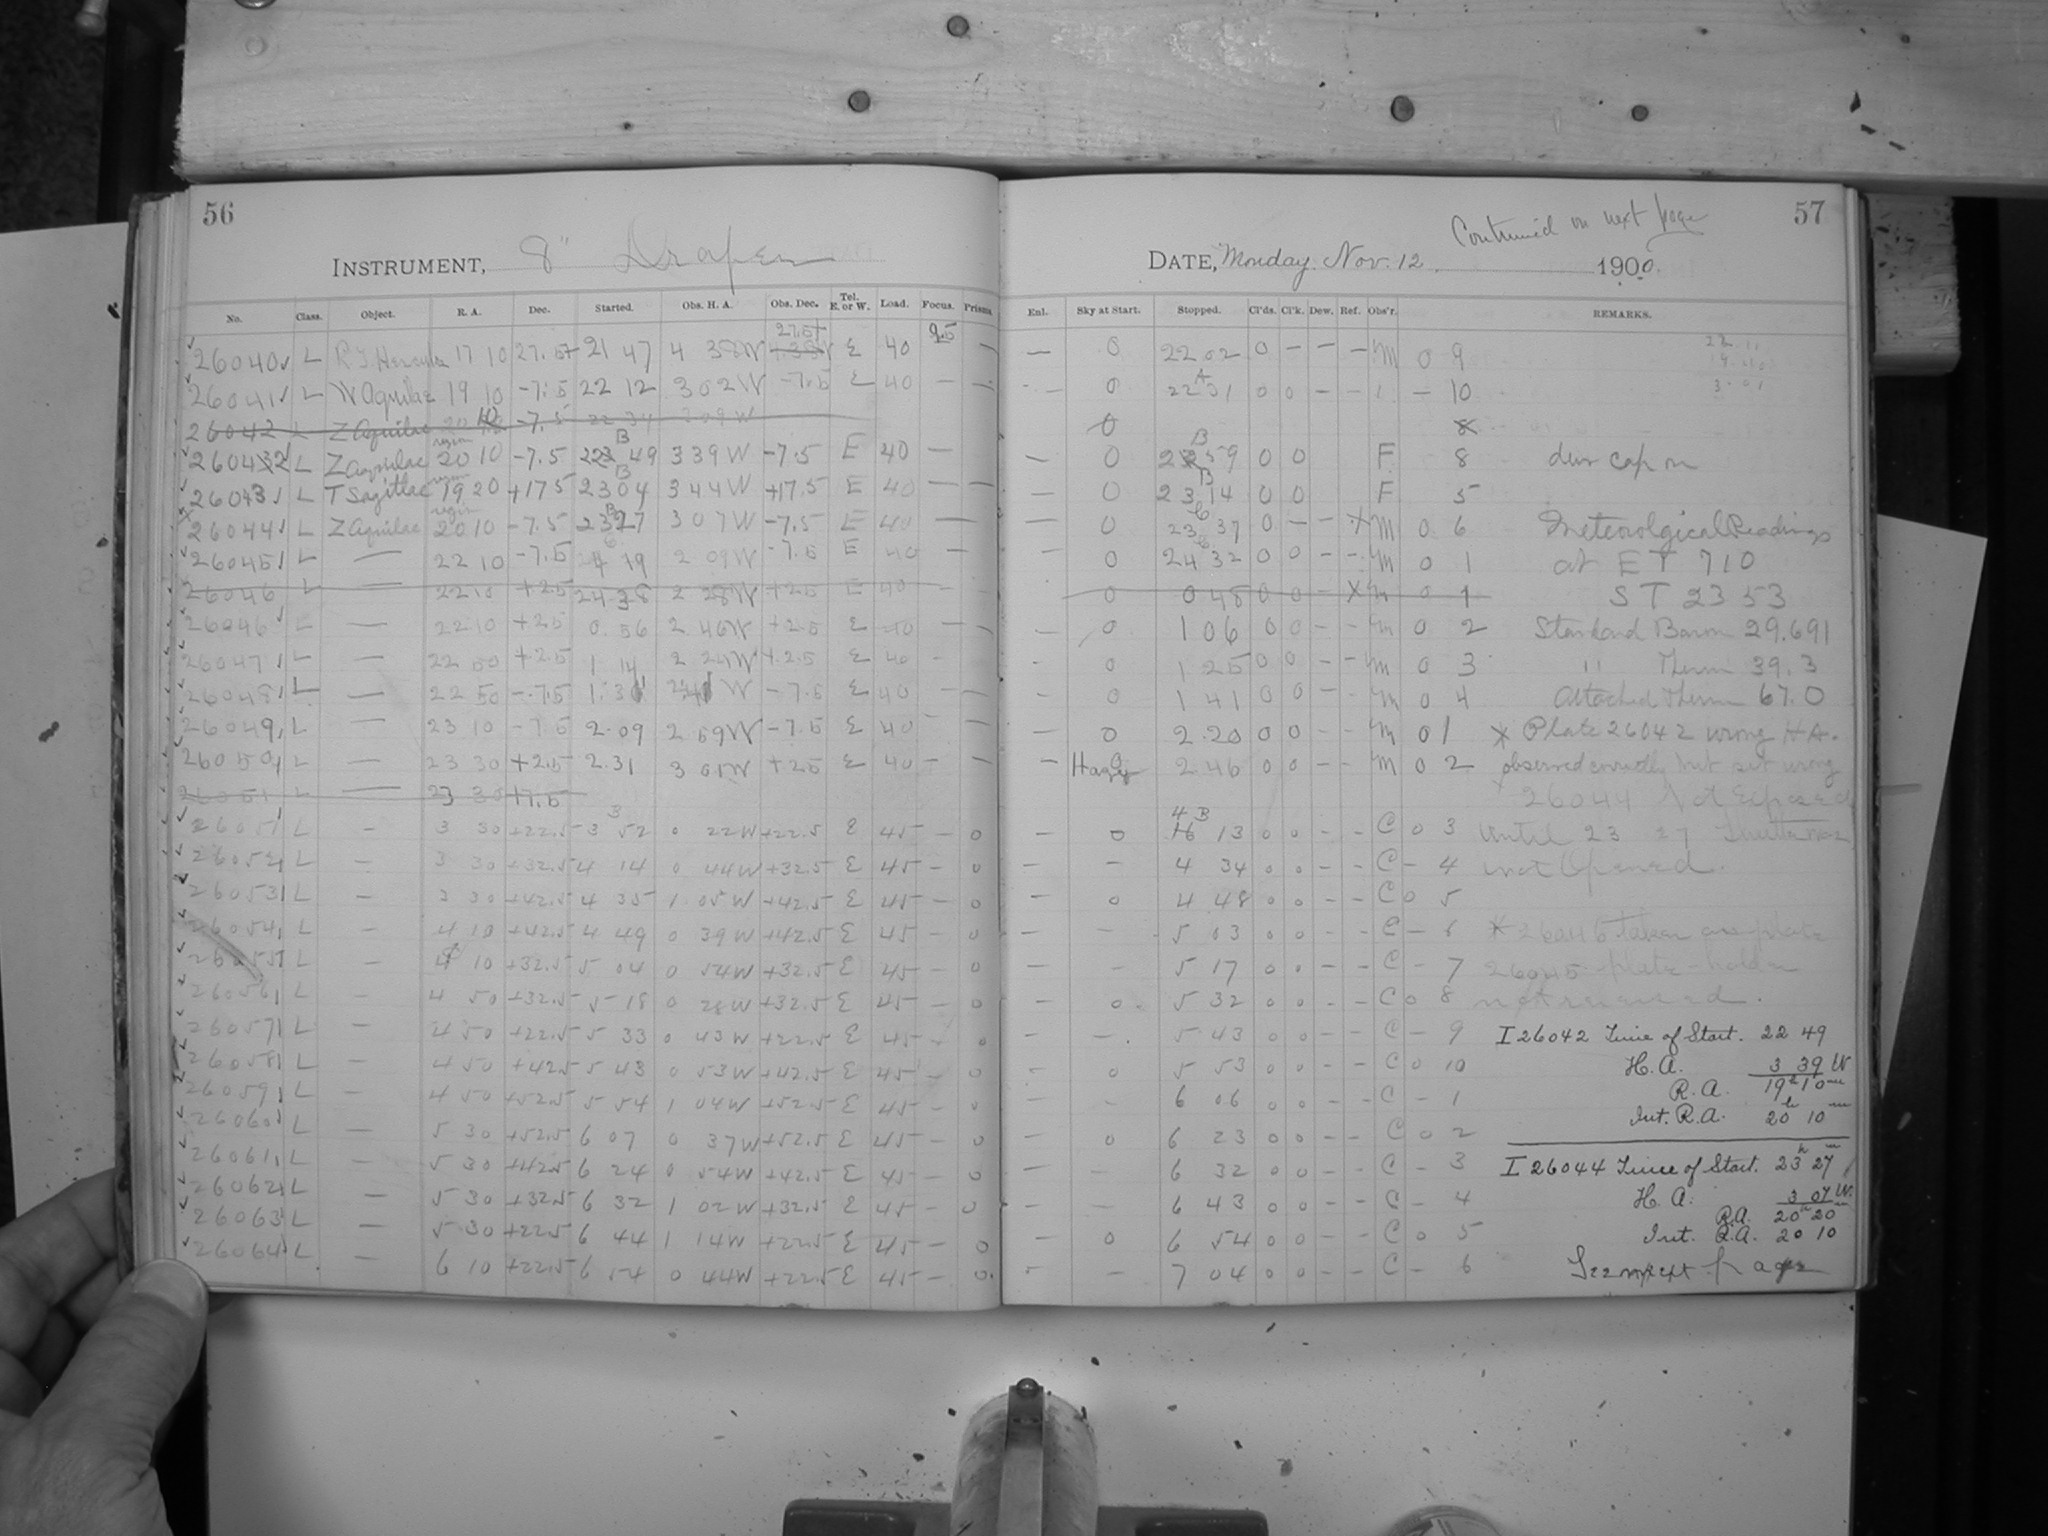 56
INSTRUMENT, 8" Draper
No. Class. Object. R. A. Dec. Started. Obs. H. A. Obs. Dec. Tel. E. or W. Load. Focus. Prisms
26040 L R.T. Hercules 17 10 27.5+ 21 47 4 38W 27.5+ E 40 9.5 —
26041 L W Aquilae 19 10 -7.5 22 12 302W -7.5 E 40 — —
26042 L Z Aquilae 20 10 -7.5 22 34 209W
26042 L Z Aquilae 20 10 -7.5 22 49 3 39 W -7.5 E 40 —
26043 L T Sagittae 19 20 +17 5 23 04 3 44 W +17.5 E 40 — —
26044 L Z Aquilae 20 10 -7.5 23 27 3 07 W -7.5 E 40 — —
26045 L — 22 10 -7.5 24 19 2 09W -7.5 E 40 — —
26046 L — 22 10 +2.5 24 38 2 28W +2.5 E 40 — —
26046 L — 22 10 +2.5 0.56 2 46W +2.5 E 40 — —
26047 L — 22 50 +2.5 1 14 2 24W +2.5 E 40 —
26048 L — 22 50 -7.5 1.31 2 41 W -7.5 E 40 — —
26049 L — 23 10 -7.5 2.09 2 59W -7.5 E 40 — —
26050 L — 23 30 +2.5 2.31 3 01W +2.5 E 40 — —
26051 L — 23 30 +7.5
26051 L — 3 30 +22.5 3 52 0 22W +22.5 E 45 — 0
26052 L — 3 30 +32.5 4 14 0 44W +32.5 E 45 — 0
26053 L — 3 30 +42.5 4 35 1 05W +42.5 E 45 — 0
26054 L — 4 10 +42.5 4 49 0 39W +42.5 E 45 — 0
26055 L — 4 10 +32.5 5 04 0 54W +32.5 E 45 — 0
26056 L — 4 50 +32.5 5 18 0 28W +32.5 E 45 — 0
26057 L — 4 50 +22.5 5 33 0 43W +22.5 E 45 — 0
26058 L — 4 50 +42.5 5 43 0 53W +42.5 E 45 — 0
26059 L — 4 50 +52.5 5 54 1 04W +52.5 E 45 — 0
26060 L — 5 30 +52.5 6 07 0 37W +52.5 E 45 — 0
26061 L — 5 30 +42.5 6 24 0 54W +42.5 E 45 — 0
26062 L — 5 30 +32.5 6 32 1 02W +32.5 E 45 — 0
26063 L — 5 30 +22.5 6 44 1 14W +22.5 E 45 — 0
26064 L — 6 10 +22.5 6 54 0 44W +22.5 E 45 — 0
57
Continued on next page
DATE, Monday. Nov. 12 1900.
Enl. Sky at Start. Stopped. Cl'ds. Cl'k. Dew. Ref. Obs'r. REMARKS.
— 0 22 02 0 — — — M 0 9
— 0 22 31 0 0 — — — 10
0 8
— 0 22 59 0 0 F 8 dew cap on
— 0 23 14 0 0 F 5
— 0 23 37 0 — — X M 0 6 Meteorolgical Readings
— 0 24 32 0 0 — — M 0 1 at E T 7 10
0 0 48 0 0 — X M 0 1 S T 23 53
— 0 1 06 0 0 — — M 0 2 Standard Barom 29.691
— 0 1 25 0 0 — — M 0 3 " Therm 39.3
— 0 1 41 0 0 — — M 0 4 Attached Therm 67.0
— 0 2.20 0 0 — — M 0 1 * Plate 26042 wrong H A.
— Hazy 0 2 46 0 0 — — M 0 2 observed correctly but set wrong
26044 Not Exposed
— 0 4 13 0 0 — — C 0 3 until 23 27 Shutter was
— — 4 34 0 0 — — C — 4 not Opened.
— 0 4 48 0 0 — — C 0 5
— — 5 03 0 0 — — C — 6 * 26046 taken on plate
— — 5 17 0 0 — — C — 7 26045 plate-holder
— 0 5 32 0 0 — — C 0 8 not reversed.
— — 5 43 0 0 — — C — 9 I 26042 Time of Start. 22 49
— 0 5 53 0 0 — — C 0 10 H. A. 3 39 W
— — 6 06 0 0 — — C — 1 R. A. 19h 10m
Int. R.A. 20h 10m
— 0 6 23 0 0 — — C 0 2
— — 6 32 0 0 — — C — 3 I 26044 Time of Start. 23h 27m
— — 6 43 0 0 — — C — 4 H. A. 3 07 W.
R.A. 20h 20m
— 0 6 54 0 0 — — C 0 5 Int. R.A. 20 10
— — 7 04 0 0 — — C — 6 See next page